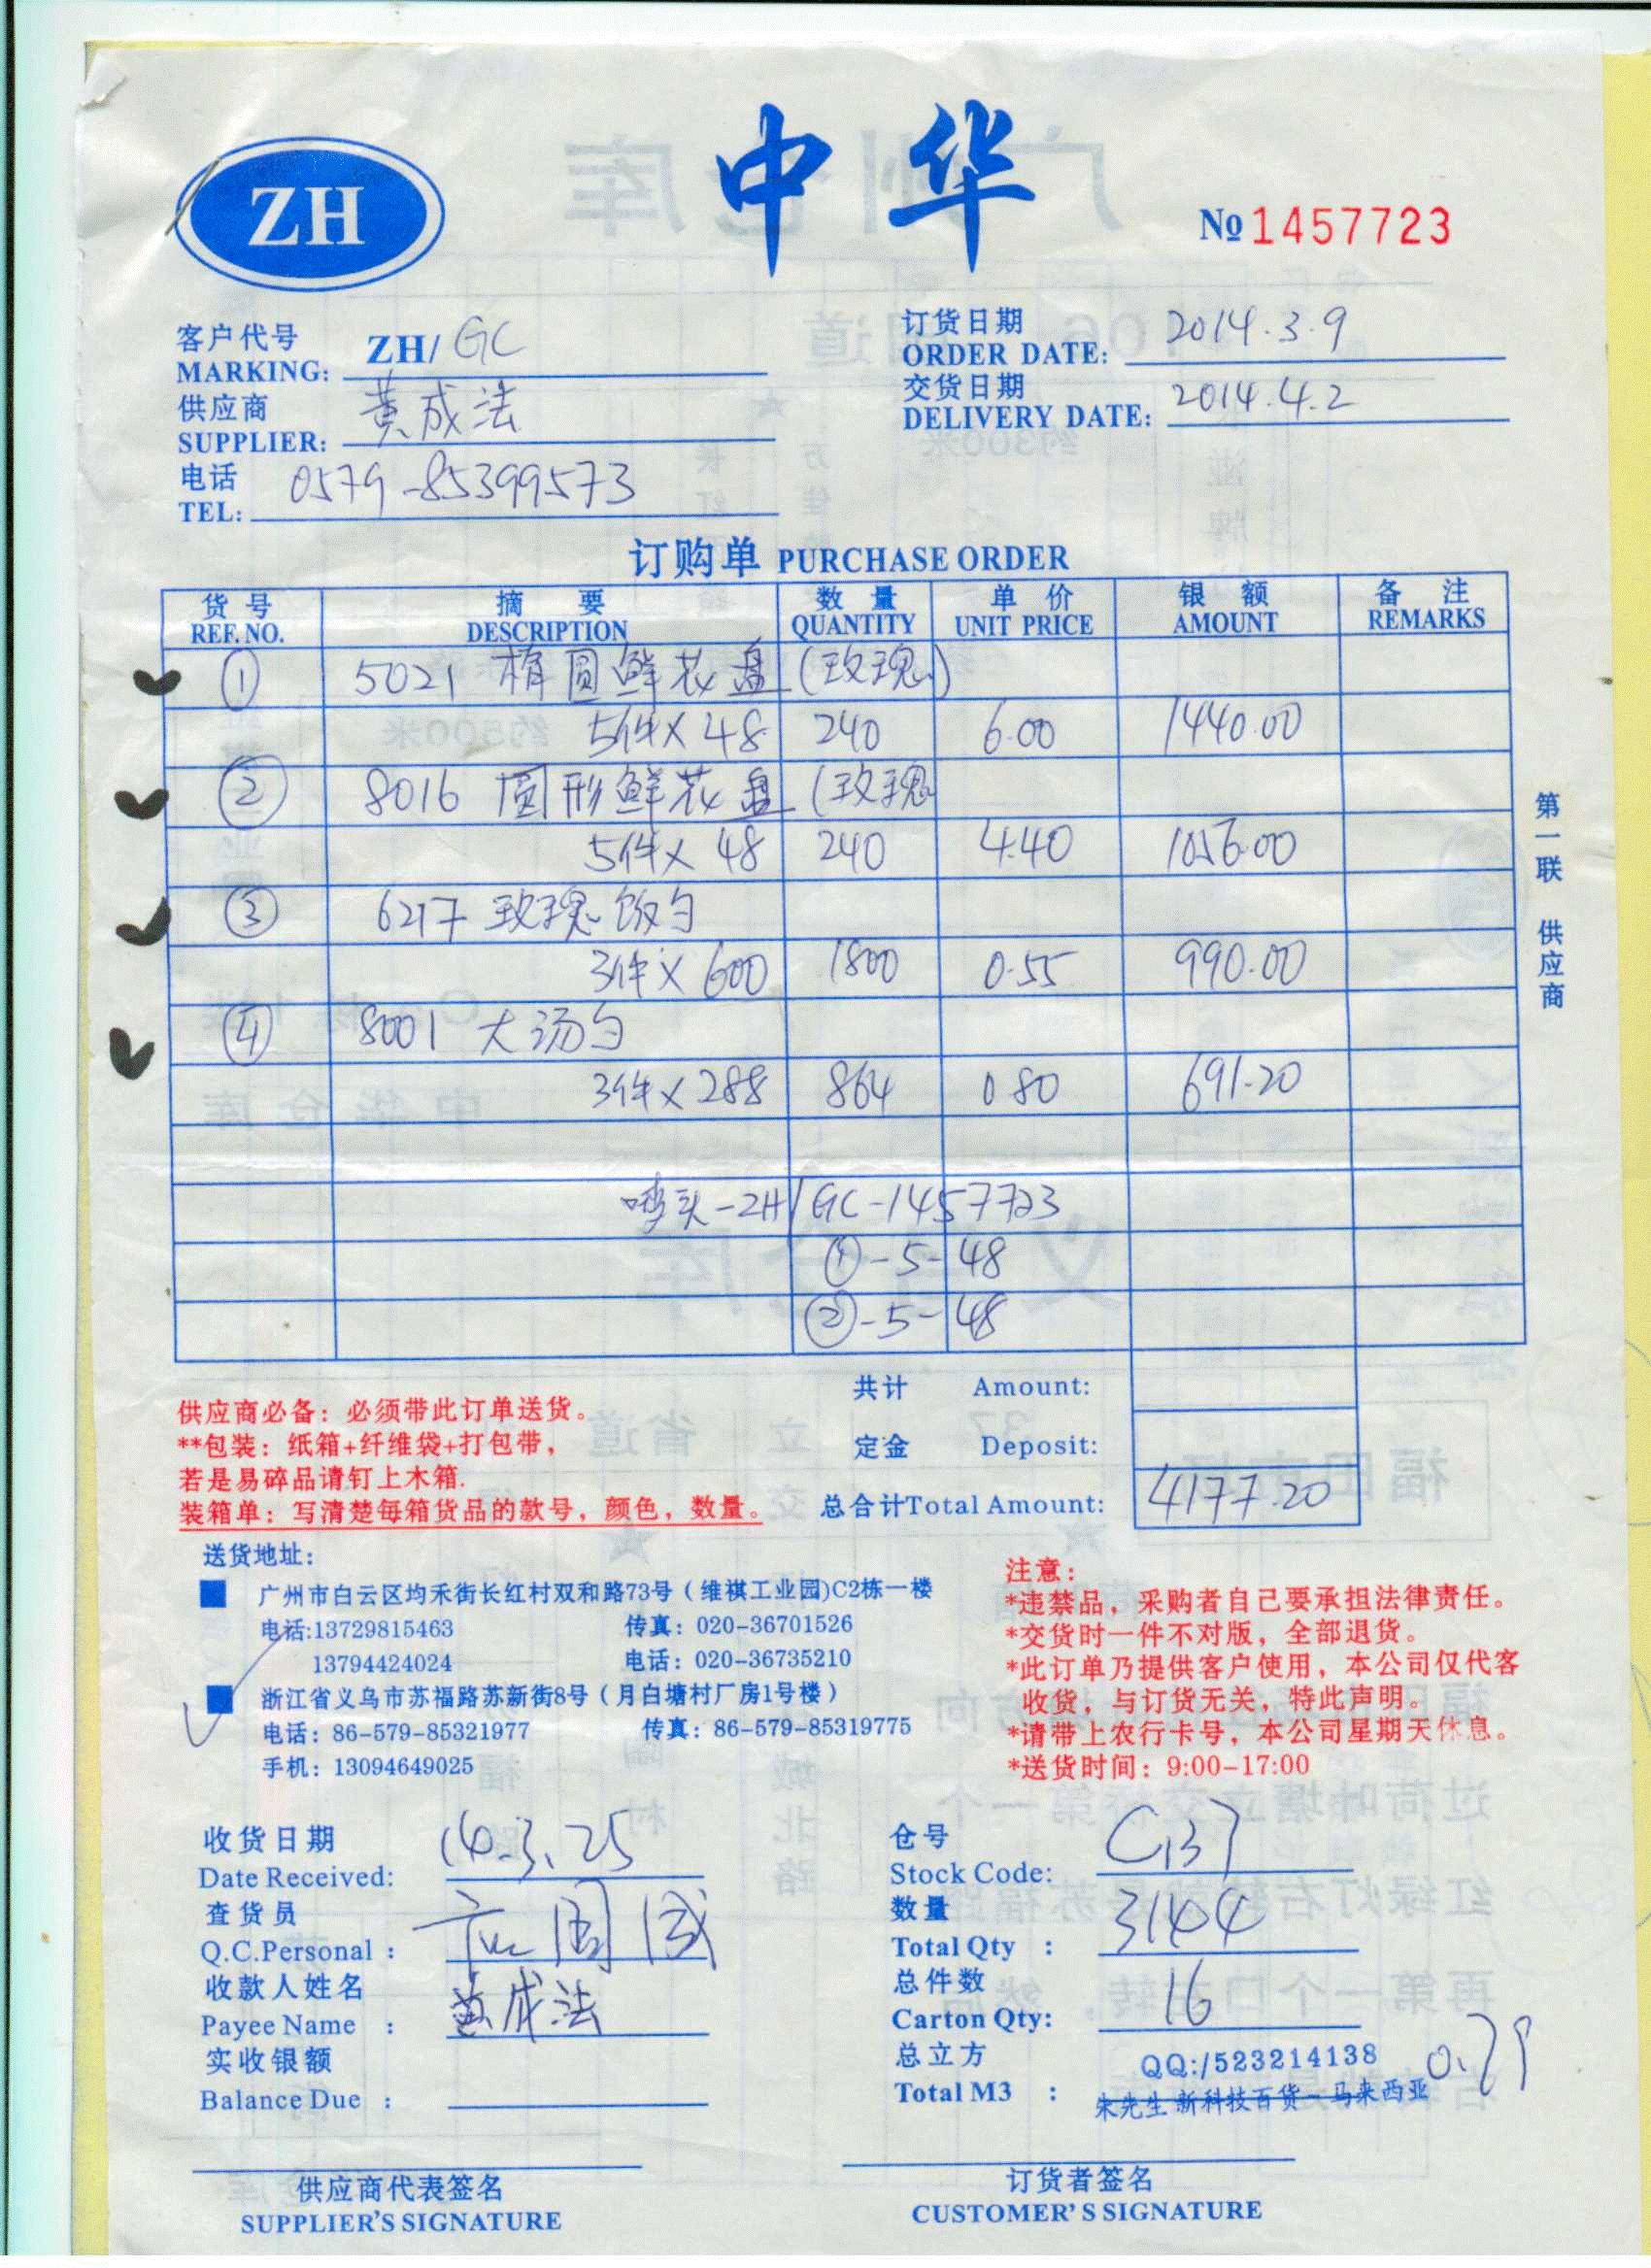 ZH
中华
№ 1457723
客户代号
MARKING: ZH/ GC
订货日期
ORDER DATE: 2014.3.9
供应商
SUPPLIER: 黄成法
交货日期
DELIVERY DATE: 2014.4.2
电话
TEL: 0579-85399573
订购单 PURCHASE ORDER
货号 摘要 数量 单价 银额 备注
REF. NO. DESCRIPTION QUANTITY UNIT PRICE AMOUNT REMARKS
① 5021 椭圆鲜花盘(玫瑰)
5件×48 240 6.00 1440.00
② 8016 圆形鲜花盘(玫瑰
5件×48 240 4.40 1056.00
③ 6217 玫瑰饭勺
3件×600 1800 0.55 990.00
④ 8001 大汤勺
3件×288 864 0.80 691.20
唛头-ZH/GC-1457723
①-5-48
②-5-48
第一联 供应商
共计 Amount:
定金 Deposit:
总合计Total Amount: 4177.20
供应商必备：必须带此订单送货。
**包装：纸箱+纤维袋+打包带，
若是易碎品请钉上木箱.
装箱单：写清楚每箱货品的款号，颜色，数量。
送货地址：
广州市白云区均禾街长红村双和路73号（维祺工业园)C2栋一楼
电话:13729815463 传真：020-36701526
13794424024 电话：020-36735210
浙江省义乌市苏福路苏新街8号（月白塘村厂房1号楼）
电话：86-579-85321977 传真：86-579-85319775
手机：13094649025
注意：
*违禁品，采购者自己要承担法律责任。
*交货时一件不对版，全部退货。
*此订单乃提供客户使用，本公司仅代客
收货，与订货无关，特此声明。
*请带上农行卡号，本公司星期天休息。
*送货时间：9:00-17:00
收货日期
Date Received: 14.3.25
查货员
Q.C.Personal :
收款人姓名
Payee Name : 黄成法
实收银额
Balance Due :
仓号
Stock Code: C137
数量
Total Qty : 3144
总件数
Carton Qty: 16
总立方
Total M3 : 0.79
QQ:/523214138
朱先生 新科技百货－马来西亚
供应商代表签名
SUPPLIER'S SIGNATURE
订货者签名
CUSTOMER'S SIGNATURE